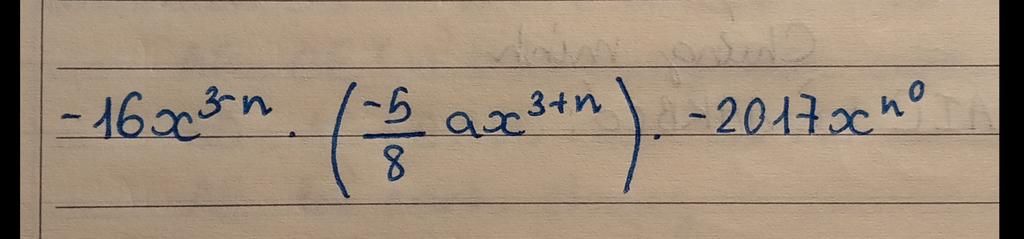 -16x^{3-n} . (\frac{-5}{8} ax^{3+n}) . -2017x^{n^0}